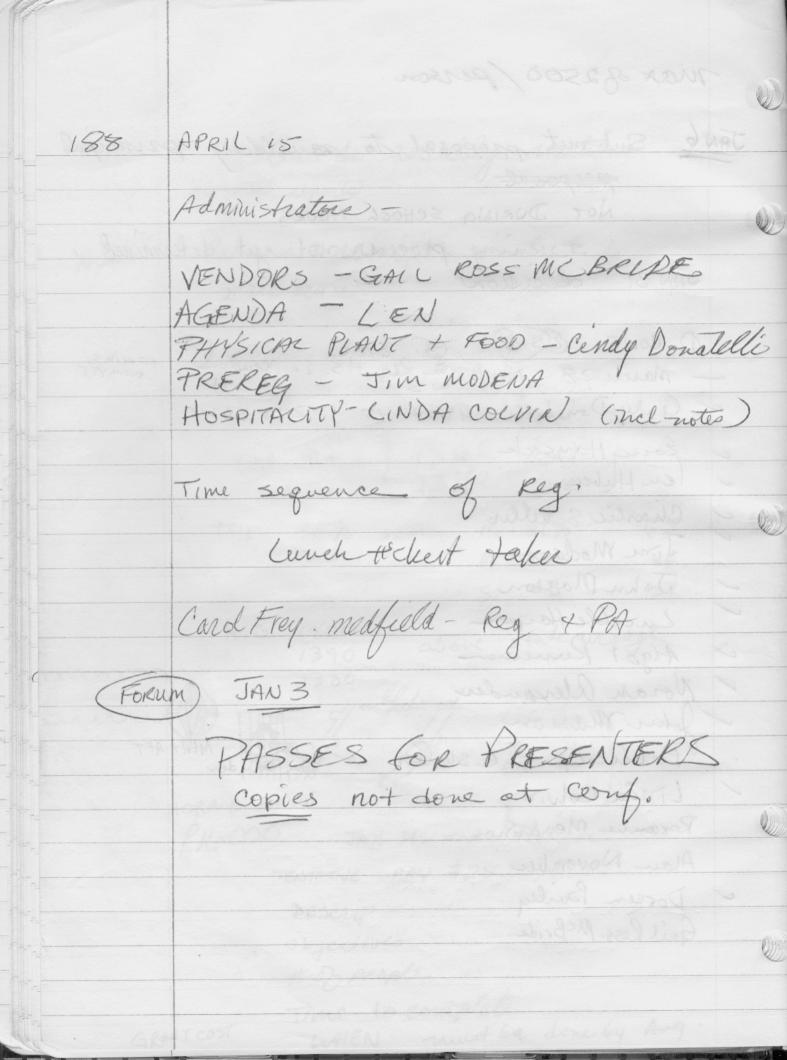 188 APRIL 15
Administrators -
VENDORS - GAIL ROSS MCBRIDE
AGENDA - LEN
PHYSICAL PLANT + FOOD - Cindy Donatelli
PREREG - JIM MODENA
HOSPITALITY - LINDA COLVIN (incl-notes)
Time sequence of Reg.
Lunch ticket taker
Carol Frey. medfield - Reg + PA
FORUM JAN 3
PASSES FOR PRESENTERS
copies not done at conf.